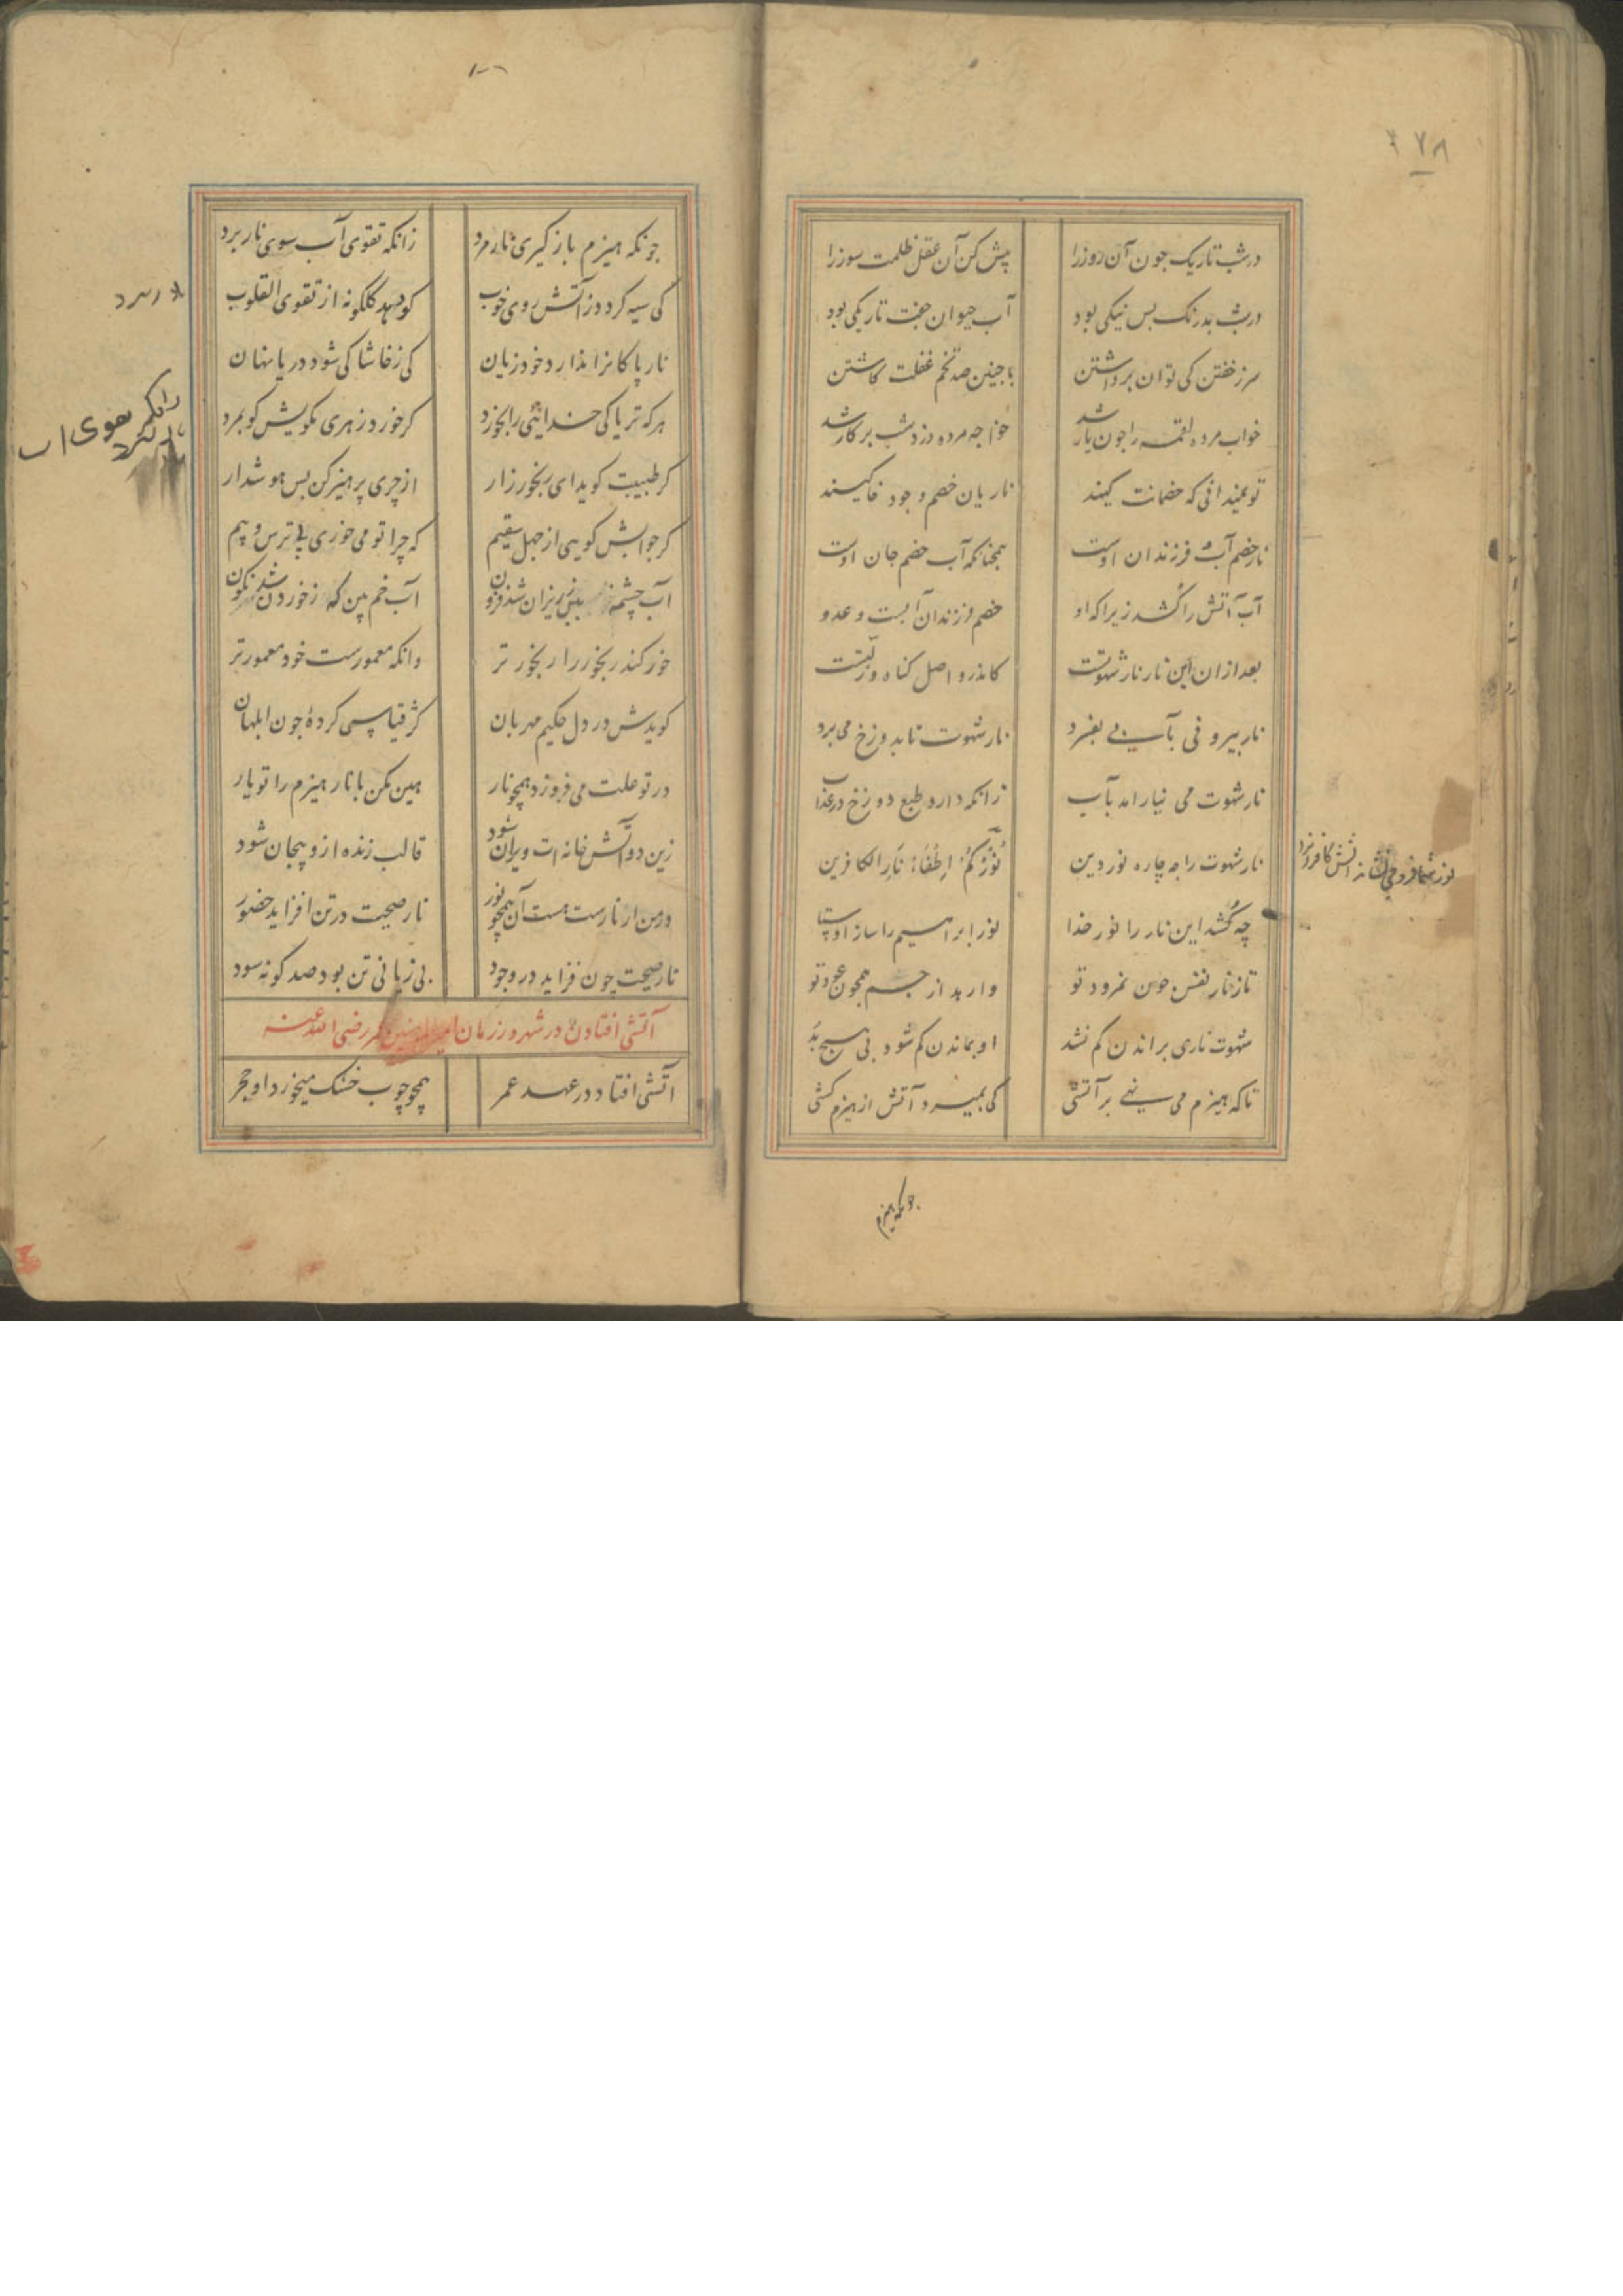 ۲۷۸
در شب تاریک جون آن روز را پیش کن آن عقل ظلمت سوز را
در شب بدرنک بس نیکی بود آب حیوان جفت تاریکی بود
سر ز خفتن کی توان برداشتن با جنین صد تخم غفلت کاشتن
خواب مرده لقمه را جون یار شد خواجه مرده دزد شب بر کار شد
تو نمیدانی که خصمانت کیند ناریان خصم وجود خاکیند
نار خصم آب و فرزندان اوست همجنانکه آب خصم جان اوست
آب آتش را کُشد زیرا که او خصم فرزندان آبست و عدو
بعد ازان این نار نار شهوتست کاندرو اصل کناه و زلّتست
نار بیرونی بآبی بفسرد نار شهوت تا بدوزخ می برد
نار شهوت می نیارامد بآب زانکه دارد طبع دوزخ در عذاب
نار شهوت را چه چاره نور دین نُورُکُمْ اِطْفَاءُ نَارِ الکافرین
نور شما فرو نشاننده آتش کافرانرا
چه کُشد این نار را نور خذا نور ابراهیم را ساز اوستا
تا ز نار نفس جون نمرود تو وارهد از جسم همجون عود تو
شهوت ناری براندن کم نشد او بماندن کم شود بی هیج بَد
تا که هیزم می نهی بر آتشی کی بمیرد آتش از هیزم کشی
جونکه هیزم
جونکه هیزم باز کیری نار مرد زانکه تقوی آب سوی نار برد
کی سیه کردد ز آتش روی خوب کو نهد کلکونه از تقوی القلوب
نار پاکانرا نذارد خود زیان کی ز خاشاکی شود دریا نهان
هرکه تریاکی خدایی را بخورد کر خورد زهری مکویش کو بمرد
کر طبیبت کوید ای رنجور زار از چری پرهیز کن بس هوشدار
کر جوابش کویی از جهل سقیم که چرا تو می خوری بی ترس و بیم
آب چشمه بین ریزان شد فزون آب خم بین که ز خوردن شد نکون
خور کند رنجور را رنجور تر وانکه معمورست خود معمورتر
کویدش در دل حکیم مهربان کژ قیاسی کردهٔ جون ابلهان
در تو علت می فروزد همچو نار هین مکن با نار هیزم را تو یار
زین دو آتش خانه ات ویران شود قالب زنده ازو بیجان شود
در من ار نارست هست آن همچو نور نار صحت در تن افزاید حضور
نار صحت چون فزاید در وجود بی زیانی تن بود صد کونه سود
آتشی افتادن در شهر و در زمان امیرالمومنین عمر رضی الله عنه
آتشی افتاد در عهد عمر همچو چوب خشک میخورد او حجر
زانکه تقوی اب